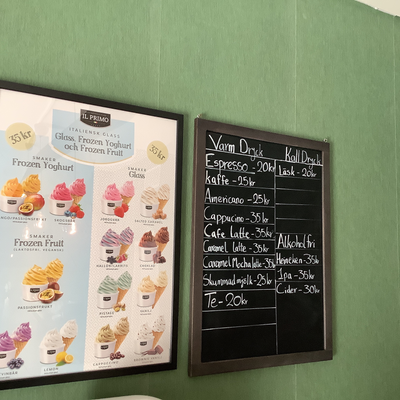 IL PRIMO
ITALIENSK GLASS
Glass, Frozen Yoghurt
och Frozen Fruit
35 kr
35 kr
SMAKER
Frozen Yoghurt
SMAKER
Glass
JORDGUBB
SMAKER
Frozen Fruit
PASSIONSFRUKT
PISTAGE
VANILJ
LEMON
CAPPUCCINO
Varm Dryck
Espresso - 20kr
Kaffe - 25kr
Americano - 25kr
Cappucino - 35kr
Cafe Latte - 35kr
Caramel latte - 35kr
Caramel Mocha latte - 35kr
Skummad mjölk - 25kr
Te - 20kr
Kall Dryck
Läsk - 20kr
Alkohol fri
Heineken - 35kr
Ipa - 35kr
Cider - 30kr